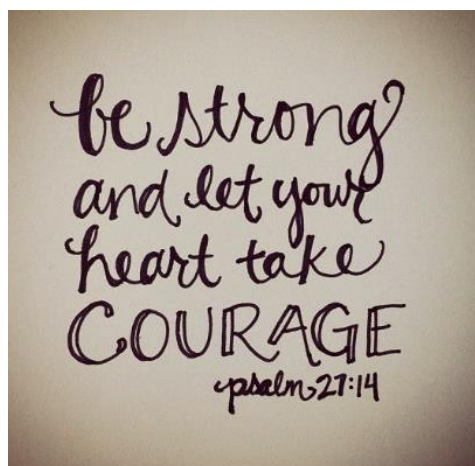 be strong
and let your
heart take
COURAGE
psalm 27:14